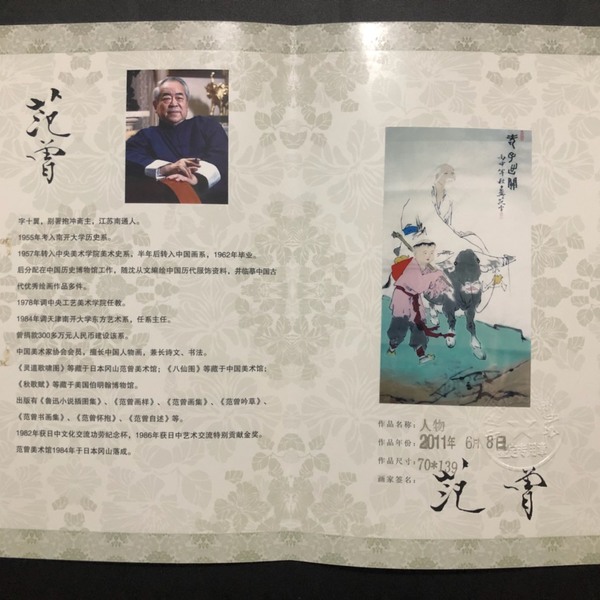 范曾
字十翼,别署抱冲斋主,江苏南通人。
1955年考入南开大学历史系。
1957年转入中央美术学院美术史系,半年后转入中国画系,1962年毕业。
后分配在中国历史博物馆工作,随沈从文编绘中国历代服饰资料,并临摹中国古
代优秀绘画作品多件。
1978年调中央工艺美术学院任教。
1984年调天津南开大学东方艺术系,任系主任。
曾捐款300多万元人民币建设该系。
中国美术家协会会员,擅长中国人物画,兼长诗文、书法。
《灵道歌啸图》等藏于日本冈山范曾美术馆;《八仙图》等藏于中国美术馆;
《秋歌赋》等藏于美国伯明翰博物馆。
出版有《鲁迅小说插图集》、《范曾画样》、《范曾画集》、《范曾吟草》、
《范曾书画集》、《范曾怀抱》、《范曾自述》等。
1982年获日中文化交流功劳纪念杯,1986年获日中艺术交流特别贡献金奖。
范曾美术馆1984年于日本冈山落成。
老子出关
作品名称:人物
作品年份:2011年 6月 8日
作品尺寸:70*139
画家签名:范曾